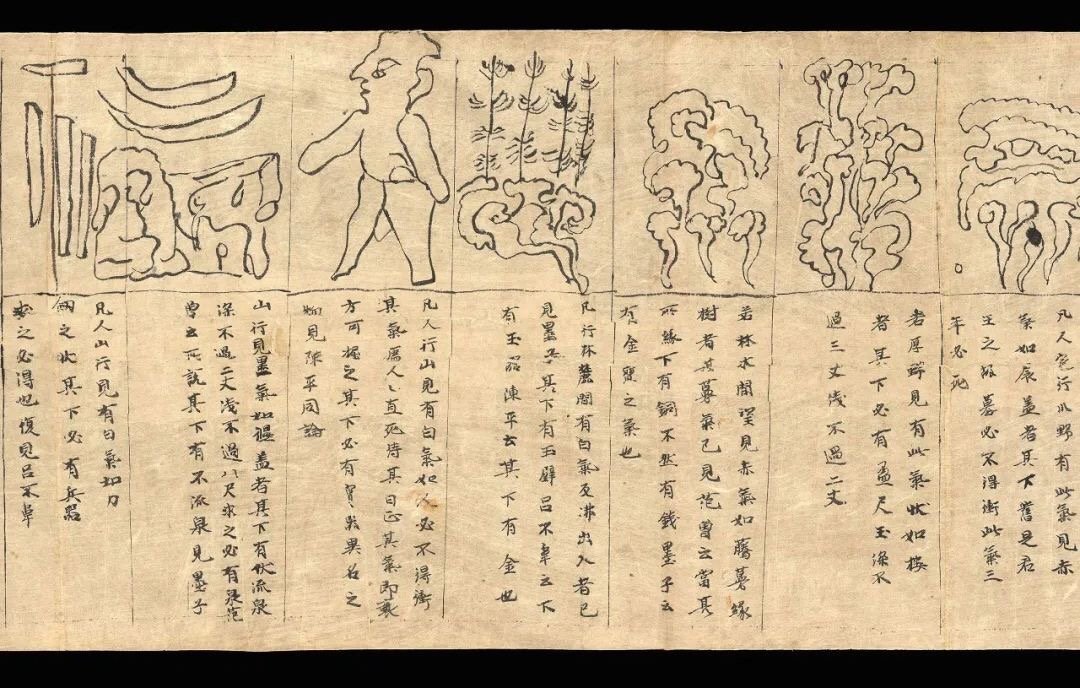 凡人行野有此氣見赤
氣如辰蓋者其下舊是君
王之墓必不得衝此氣三
年必死
者厚見有此氣狀如
者其下必有盈尺玉深不
過三丈淺不過二丈
若林木間望見赤氣如藤蔓緣
樹者其蔓氣已見范曾云當其
所緣下有銅不然有錢墨子云
有金寶之氣也
凡行林麓間有白氣及沸出入者已
見墨子其下有玉璧呂不韋云下
有玉器陳平云其下有金也
凡人行山見有白氣如人必不得衝
其氣厲人々直死待其日正其氣即衰
方可掘之其下必有異名之
物見陳平同論
山行見墨氣如偃蓋者其下有伏流泉
深不過二丈淺不過八尺求之必有泉范
曾云所說其下有不流泉見墨子
凡人山行見有白氣如刀
劍之狀其下必有兵器
求之必得也復見呂不韋